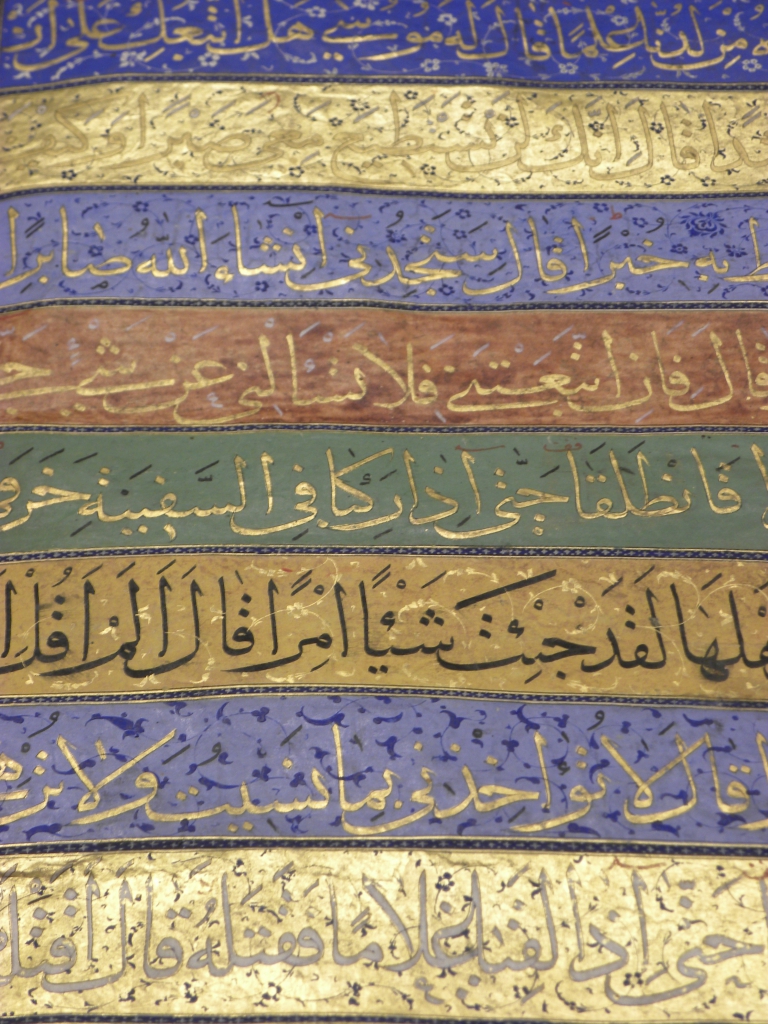 مِن لَدُنَّا عِلْمًا قَالَ لَهُ مُوسَىٰ هَلْ أَتَّبِعُكَ عَلَىٰ أَن
قَالَ إِنَّكَ لَن تَسْتَطِيعَ مَعِيَ صَبْرًا وَكَيْفَ
بِهِ خُبْرًا قَالَ سَتَجِدُنِي انْشَاءَ اللَّهُ صَابِرًا
قَالَ فَإِنِ اتَّبَعْتَنِي فَلَا تَسْأَلْنِي عَن شَيْءٍ
فَانطَلَقَا حَتَّىٰ إِذَا رَكِبَا فِي السَّفِينَةِ خَرَقَ
لَقَدْ جِئْتَ شَيْئًا إِمْرًا قَالَ أَلَمْ أَقُلْ
قَالَ لَا تُؤَاخِذْنِي بِمَا نَسِيتُ وَلَا تُرْهِ
حَتَّىٰ إِذَا لَقِيَا غُلَامًا فَقَتَلَهُ قَالَ أَقَتَلْ